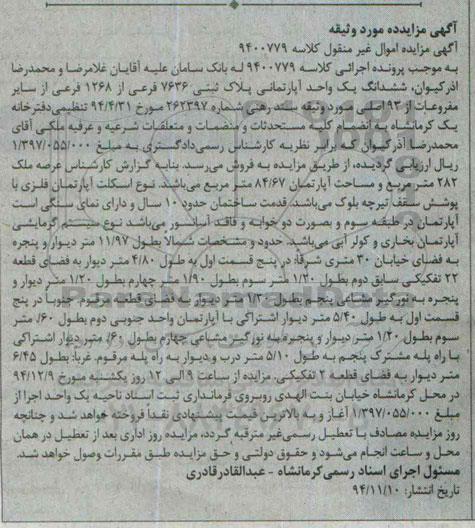 آگهی مزایده مورد وثیقه
آگهی مزایده اموال غیر منقول کلاسه ۹۴۰۰۷۷۹
به موجب پرونده اجرائی کلاسه ۹۴۰۰۷۷۹ له بانک سامان علیه آقایان غلامرضا و محمدرضا
آذرکیوان، ششدانگ یک واحد آپارتمانی پلاک ثبتی ۷۶۳۶ فرعی از ۱۲۶۸ فرعی از سایر
مفروعات از ۹۳ اصلی مورد وثیقه سند رهنی شماره ۲۶۲۳۹۷ مورخ ۹۴/۴/۳۱ تنظیمی دفترخانه
یک کرمانشاه به انضمام کلیه مستحدثات و منضمات و متعلقات شرعیه و عرفیه ملکی آقای
محمدرضا آذرکیوان که برابر نظریه کارشناس رسمی دادگستری به مبلغ ۱/۳۹۷/۰۵۵/۰۰۰
ریال ارزیابی گردیده، از طریق مزایده به فروش می‌رسد. بنابه گزارش کارشناس عرصه ملک
۲۸۲ متر مربع و مساحت آپارتمان ۸۴/۶۷ متر مربع می‌باشد. نوع اسکلت آپارتمان فلزی با
پوشش سقف تیرچه بلوک می‌باشد. قدمت ساختمان حدود ۱۰ سال و دارای نمای سنگی است
آپارتمان در طبقه سوم و بصورت دو خوابه و فاقد آسانسور می‌باشد نوع سیستم گرمایشی
آپارتمان بخاری و کولر آبی می‌باشد. حدود و مشخصات شمالا بطول ۱۱/۹۷ متر دیوار و پنجره
به فضای خیابان ۳۰ متری شرقا: در پنج قسمت اول به طول ۴/۸۰ متر دیوار به فضای قطعه
۲۲ تفکیکی سابق دوم بطول ۱/۲۰ متر سوم بطول ۱/۹۰ متر چهارم بطول ۱/۲۰ متر دیوار و
پنجره به نورگیر مشاعی پنجم بطول ۱/۳۰ متر دیوار به فضای قطعه مرقوم. جنوبا در پنج
قسمت اول به طول ۵/۴۰ متر دیوار اشتراکی با آپارتمان واحد جنوبی دوم بطول ۶۰/. متر
سوم بطول ۱/۲۰ متر دیوار و پنجره به نورگیر مشاعی چهارم بطول ۶۰/. متر دیوار اشتراکی
با راه پله مشترک پنجم به طول ۵/۱۰ متر درب و دیوار به راه پله مرقوم. غربا: بطول ۶/۴۵
متر دیوار به فضای قطعه ۲ تفکیکی. مزایده از ساعت ۹ الی ۱۲ روز یکشنبه مورخ ۹۴/۱۲/۹
در محل کرمانشاه خیابان بنت الهدی روبروی فرمانداری ثبت اسناد ناحیه یک واحد اجرا از
مبلغ ۱/۳۹۷/۰۵۵/۰۰۰ آغاز و به بالاترین قیمت پیشنهادی نقدا فروخته خواهد شد و چنانچه
روز مزایده مصادف با تعطیل رسمی غیر مترقبه گردد، مزایده روز اداری بعد از تعطیل در همان
محل و ساعت انجام می‌شود و حقوق دولتی و حق مزایده طبق مقررات وصول خواهد شد.
مسئول اجرای اسناد رسمی کرمانشاه - عبدالقادر قادری
تاریخ انتشار: ۹۴/۱۱/۱۰